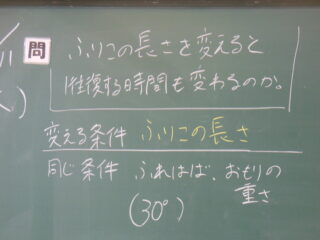 問 ふりこの長さを変えると
往復する時間も変わるのか。
変える条件 ふりこの長さ
同じ条件 ふれはば、おもりの
重さ
(30°)